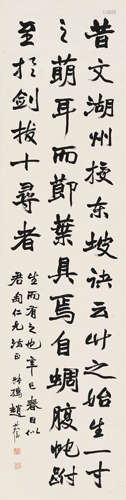 昔文湖州授东坡诀云竹之始生一寸
之萌耳而节叶具焉自蜩腹蛇跗
至于剑拔十寻者
生而有之也辛巳春日似
君甸仁兄法正